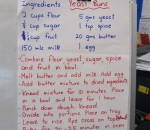 Ingredients Yeast Buns
2 cups flour 5 gms yeast
1 cup sugar 1 tsp spice
½ cup fruit 20 gms butter
150 mls milk 1 egg
Combine flour, yeast, sugar, spice
and fruit in bowl.
Melt butter and add milk. Add egg.
Add butter mixture to dried ingredients
Knead mixture for 10 minutes. Place
in a bowl and leave for 1 hour.
Punch down dough. Knead.
Divide into portions. Place on tray
Leave to rise.